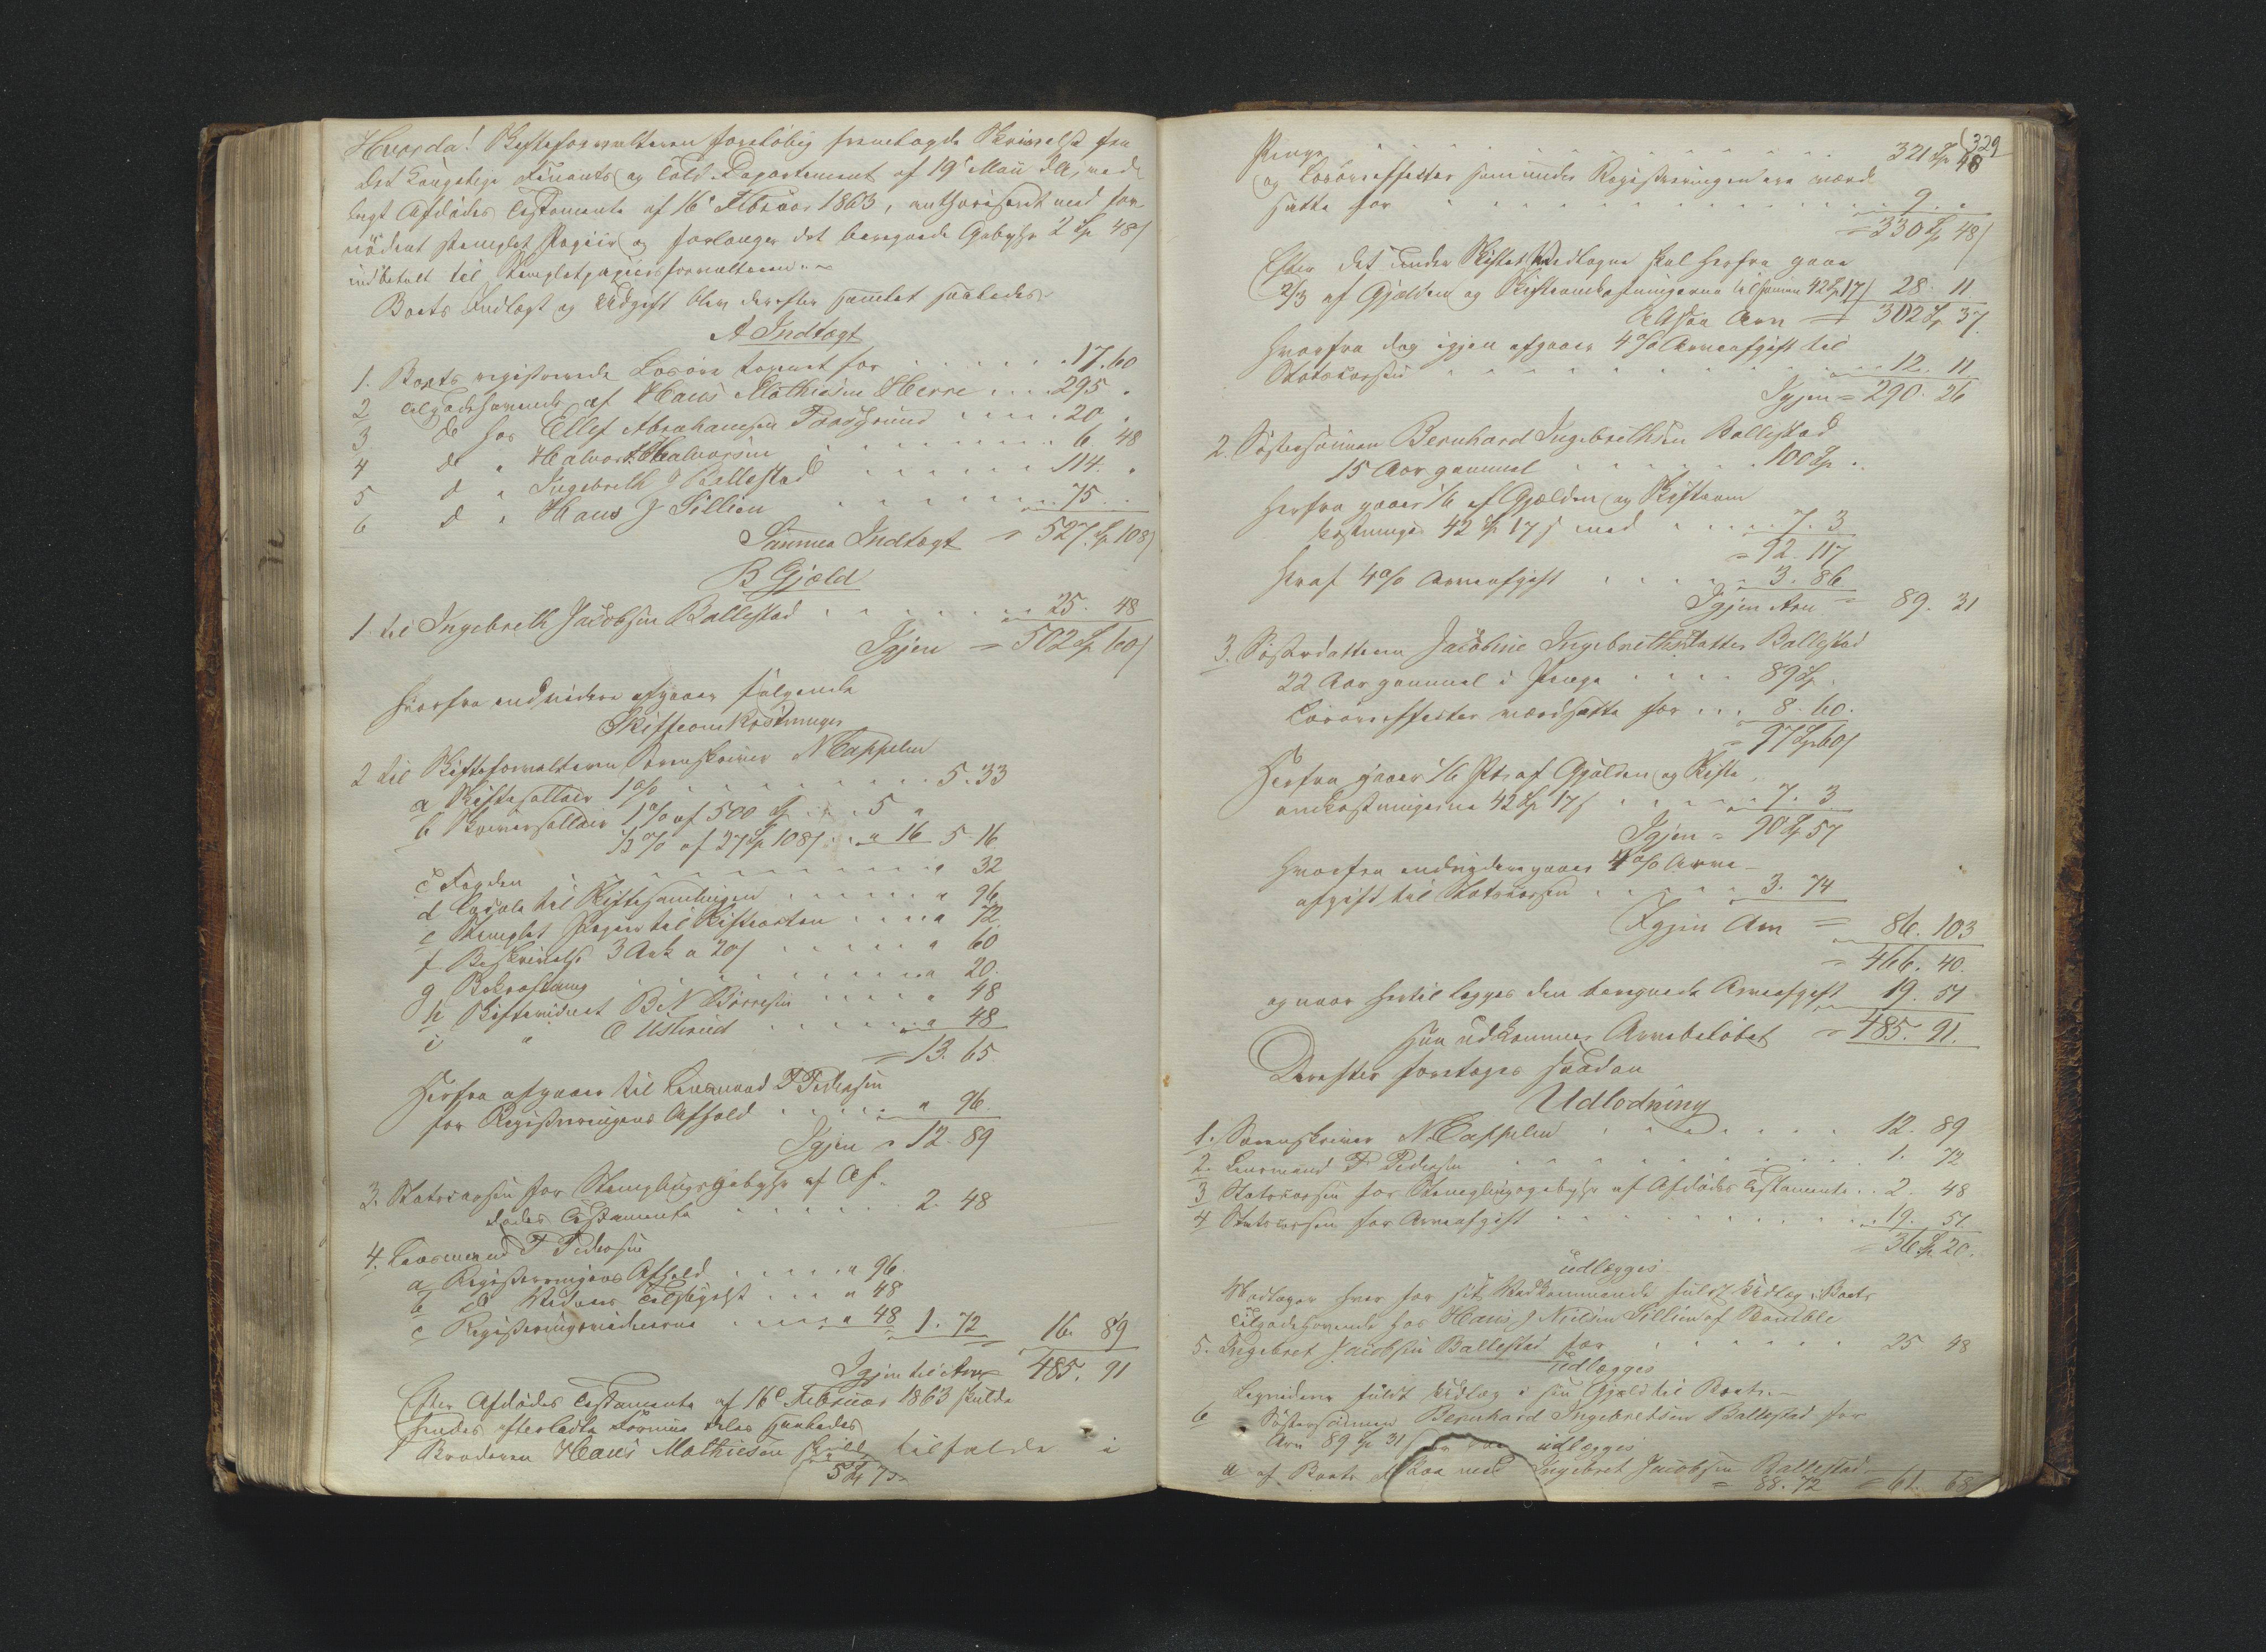 Hvorda! Skifteforvalteren foreløbig fremlagde Skrivelse fra
det Kongelige Finants og Told-Departement af 19de Mai d.A. ved-
lagt Afdødes Testamente af 16de Februar 1863, authoriseret med for-
nødent stemplet Papiir og forlanger det beregnede Gebyhr 2 Sp 48 s
indbetalt til Stempletpapiirsforvalteren. –
Boets Indtægt og Udgift blev derefter samlet saaledes
A Indtægt
1. Boets registrerede Løsøre taxeret for . . . 17. 60
2 Tilgodehavende af Hans Mathiesen Herre . . . 295 .
3 do hos Ellef Abrahamsen Porsgrund . . . 20 .
4 do " Halvor Halvorsen . . . 6. 48
5 d " Ingebreth J Ballestad . . . 114. .
6 d " Hans J Sillien . . . 75 . .
Summa Indtægt = 527 Sp 108 s
B Gjæld
1 til Ingebreth Jacobsen Ballestad . . . 25. 48
Igjen = 502 Sp 60 s
Hvorfra endvidere afgaaer følgende
Skifteomkostninger
2 til Skifteforvalteren Sorenskriver N Cappelen
a Skiftesallair 1% . . . 5. 33
b Skriversallair 1% af 500 Sp . . . 5 "
½% af 27 Sp 108 s . . " 16 5. 16
c Fogden . . . " 32
d Locale til Skiftesamlingen . . . " 96
e Stemplet Papiir til Skifteacten . . . " 72
f Beskrivelse 3 Ark a 20 s . . . " 60
g Bekræftning . . . " 20.
h Skiftevidnet B N Börresen . . . " 48
i " O Ustvud . . . " 48
= 13. 65
Herfra afgaaer til Lensmand T Pedersen
for Registreringens Afhold . . . " 96.
Igjen = 12. 89
3. Statscassen for Stemplingsgebyhr af Af-
dødes Testamente . . . 2. 48
4. Lensmand T Pedersen
a Registreringens Afhold . . . " 96.
b do Vidners Tilsigelse . . . " 48
c Registreringsvidnerne . . . " 48 1. 72 16. 89
Igjen til Arv 485. 91
Efter Afdødes Testamente af 16de Februar 1863 skulde
hendes efterladte Formue deles saaledes
1 Broderen Hans Mathiesen skulde tilfalde i
5 Sp 75
329
Penge . . . 321 Sp 48
og Løsøreeffecter som under Registreringen ere værd-
satte for . . . 9. "
= 330 Sp 48 s
Efter det under Skiftet Vedtagne skal herfra gaae
2/3 af Gjælden og Skifteomkostningerne tilsammen 42 Sp 17 s 28. 11
Altsaa Arv = 302 Sp 37.
Hvorfra dog igjen afgaaer 4% Arveafgift til
Statscassen . . . 12. 11
Igjen = 290. 26
2. Søstersønnen Bernhard Ingebrethsen Ballestad
15 Aar gammel . . . 100 Sp .
herfra gaaer 1/6 af Gjælden og Skifteom
kostninger 42 Sp 17 s med . . . 7. 3
= 92. 117
Heraf 4% Arveafgift . . . 3. 86
Igjen Arv = 89. 31
3. Søsterdatteren Jacobine Ingebrethsdatter Ballestad
22 Aar gammel i Penge . . . 89 Sp .
Løsøreeffecter værdsatte for . . . 8. 60.
= 97 Sp 60 s
Herfra gaaer 1/6 Pt. af Gjælden og Skifte
omkostningerne 42 Sp 17 s . . . 7. 3
Igjen = 90 Sp 57
Hvorfra endvidere gaaer 4% Arve-
afgift til Statscassen . . . 3. 74
Igjen Arv = 86. 103
= 466. 40.
og naar hertil lægges den beregnede Arveafgift 19. 51
saa udkommer Arvebeløbet = 485. 91.
Derefter foretoges saadan
Udlodning
1. Sorenskriver N. Cappelen . . . 12. 89
2. Lensmand T Pedersen . . . 1. 72
3 Statscassen for Stemplingsgebyhr af Afdødes Testamente . . 2. 48
4 Statscassen for Arveafgift . . . 19. 51
= 36 Sp 20.
udlægges
Modtager hver for sit Vedkommende fuldt Udlæg i Boets
Tilgodehavende hos Hans J Nielsen Sillien af Bamble
5. Ingebret Jacobsen Ballestad for . . . 25 48
udlægges
Ligeledes fuldt Udlæg i sin Gjæld til Boet. –
6 Søstersønnen Bernhard Ingebretsen Ballestad for
Arv 89 Sp 31 s udlægges
a af Boets Masse ved Ingebret Jacobsen Ballestad
= 88. 72 = 61. 68